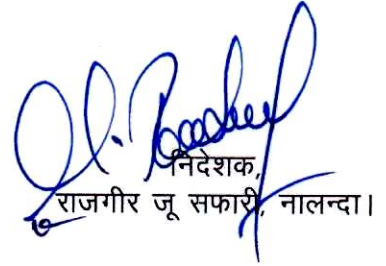 निदेशक,
राजगीर जू सफारी, नालन्दा।